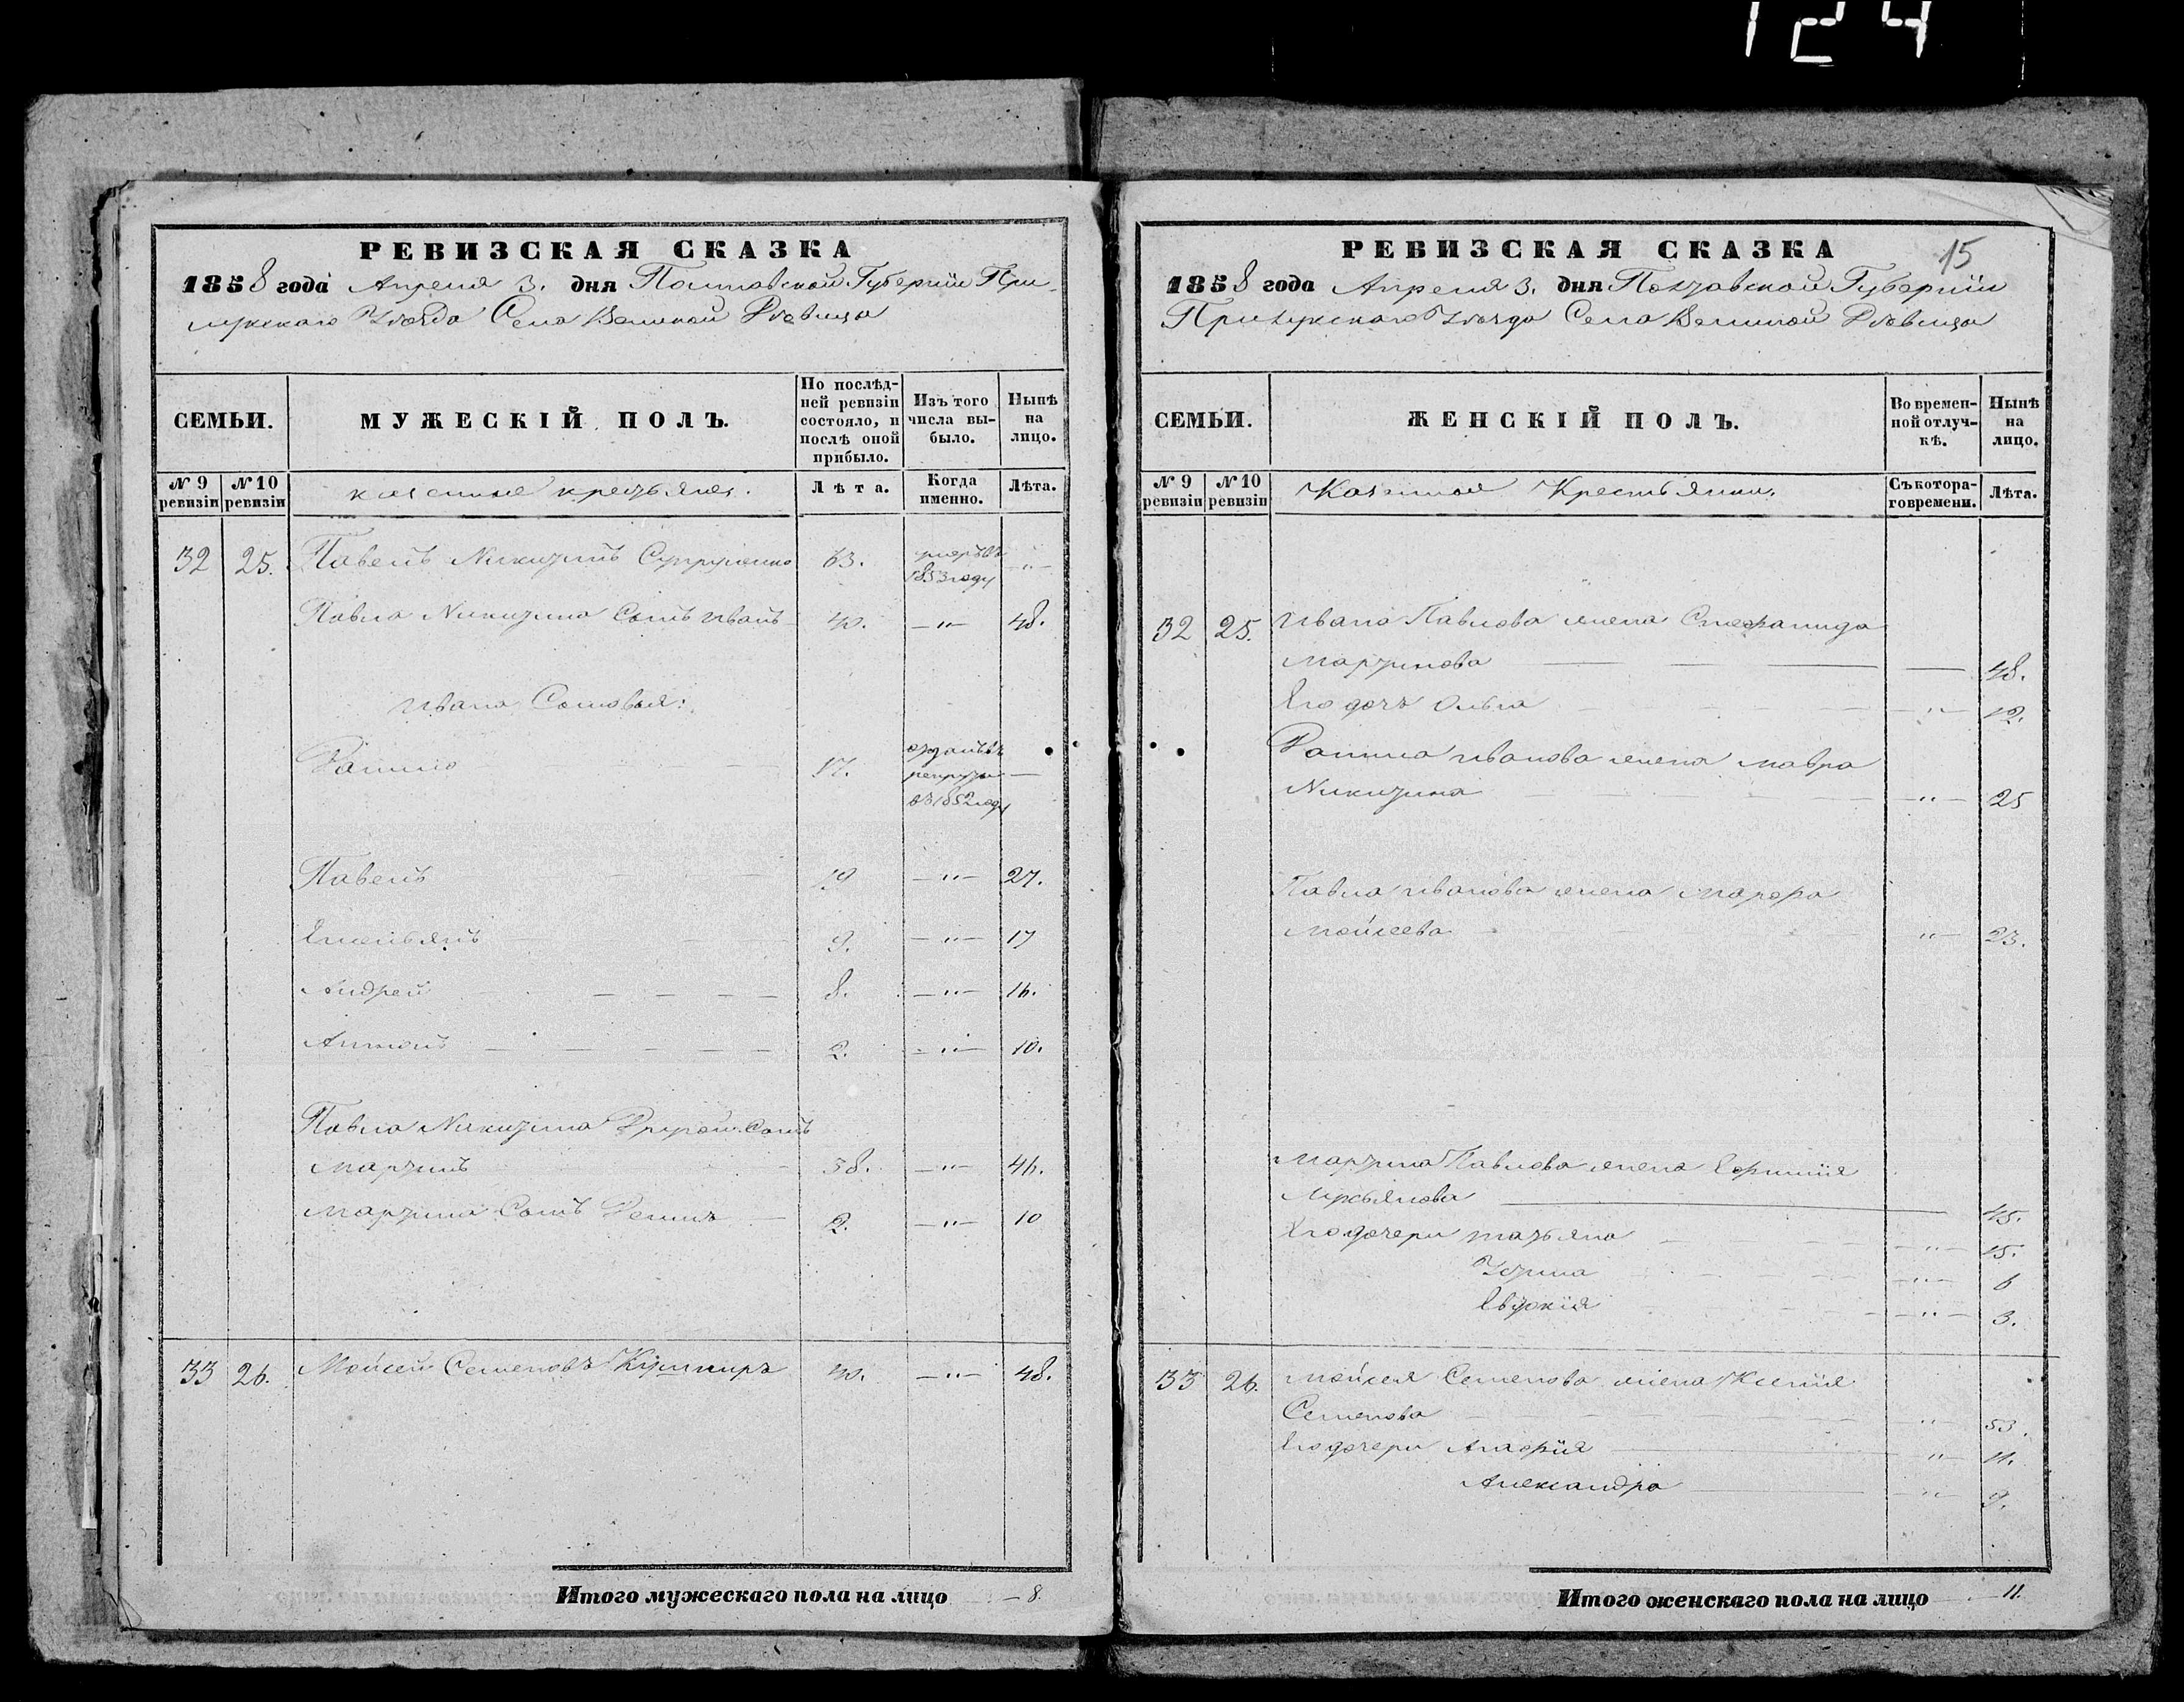 124
РЕВИЗСКАЯ СКАЗКА
1858 года Апреля 3. дня Полтавской Губернїи При-
лукского Уѣзда Села Великой Дѣвицы
СЕМЬИ.
МУЖЕСКІЙ ПОЛЪ.
По послѣд-
ней ревизіи
состояло, и
послѣ оной
прибыло.
Изъ того
числа вы-
было.
Нынѣ
на
лицо.
№ 9 ревизіи
№ 10 ревизіи
казенные крестьяне.
Лѣта.
Когда
именно.
Лѣта.
32 25. Павелъ Никитинъ Супруненко 63. умеръ въ 1853 году -"-
Павла Никитина Сынъ Иванъ 40. -"- 48.
Ивана Сыновья:
Данило 17. отданъ въ рекруты въ 1852 году —
Павелъ 19 -"- 27.
Емельянъ 9. -"- 17
Андрей 8. -"- 16.
Антонъ 2. -"- 10.
Павла Никитина Другой Сынъ
Мартинъ 38. -"- 46.
Мартина Сынъ Денисъ 2. -"- 10
33 26. Мойсей Семеновъ Кушниръ 40. -"- 48.
Итого мужескаго пола на лицо 8.
15
РЕВИЗСКАЯ СКАЗКА
1858 года Апреля 3. дня Полтавской Губернїи
Прилукского Уѣзда Села Великой Дѣвицы
СЕМЬИ.
ЖЕНСКІЙ ПОЛЪ.
Во времен-
ной отлуч-
кѣ.
Нынѣ
на
лицо.
№ 9 ревизіи
№ 10 ревизіи
Казенные Крестьянки.
Съ котора-
го времени.
Лѣта.
32 25. Ивана Павлова жена Стефанида
Мартинова — 48.
Его дочь Ольга -"- 12.
Данила Иванова жена Мавра
Никитина -"- 25
Павла Иванова жена Марфа
Мойсеева -"- 23.
Мартина Павлова жена Ефимїя
Лукьянова 45.
Его дочери Татьяна -"- 15.
Устина -"- 6
Евдокїя -"- 3.
33 26. Мойсея Семенова жена Ксенїя
Семенова -"- 53.
Его дочери Агафїя -"- 11.
Александра -"- 9.
Итого женскаго пола на лицо 11.